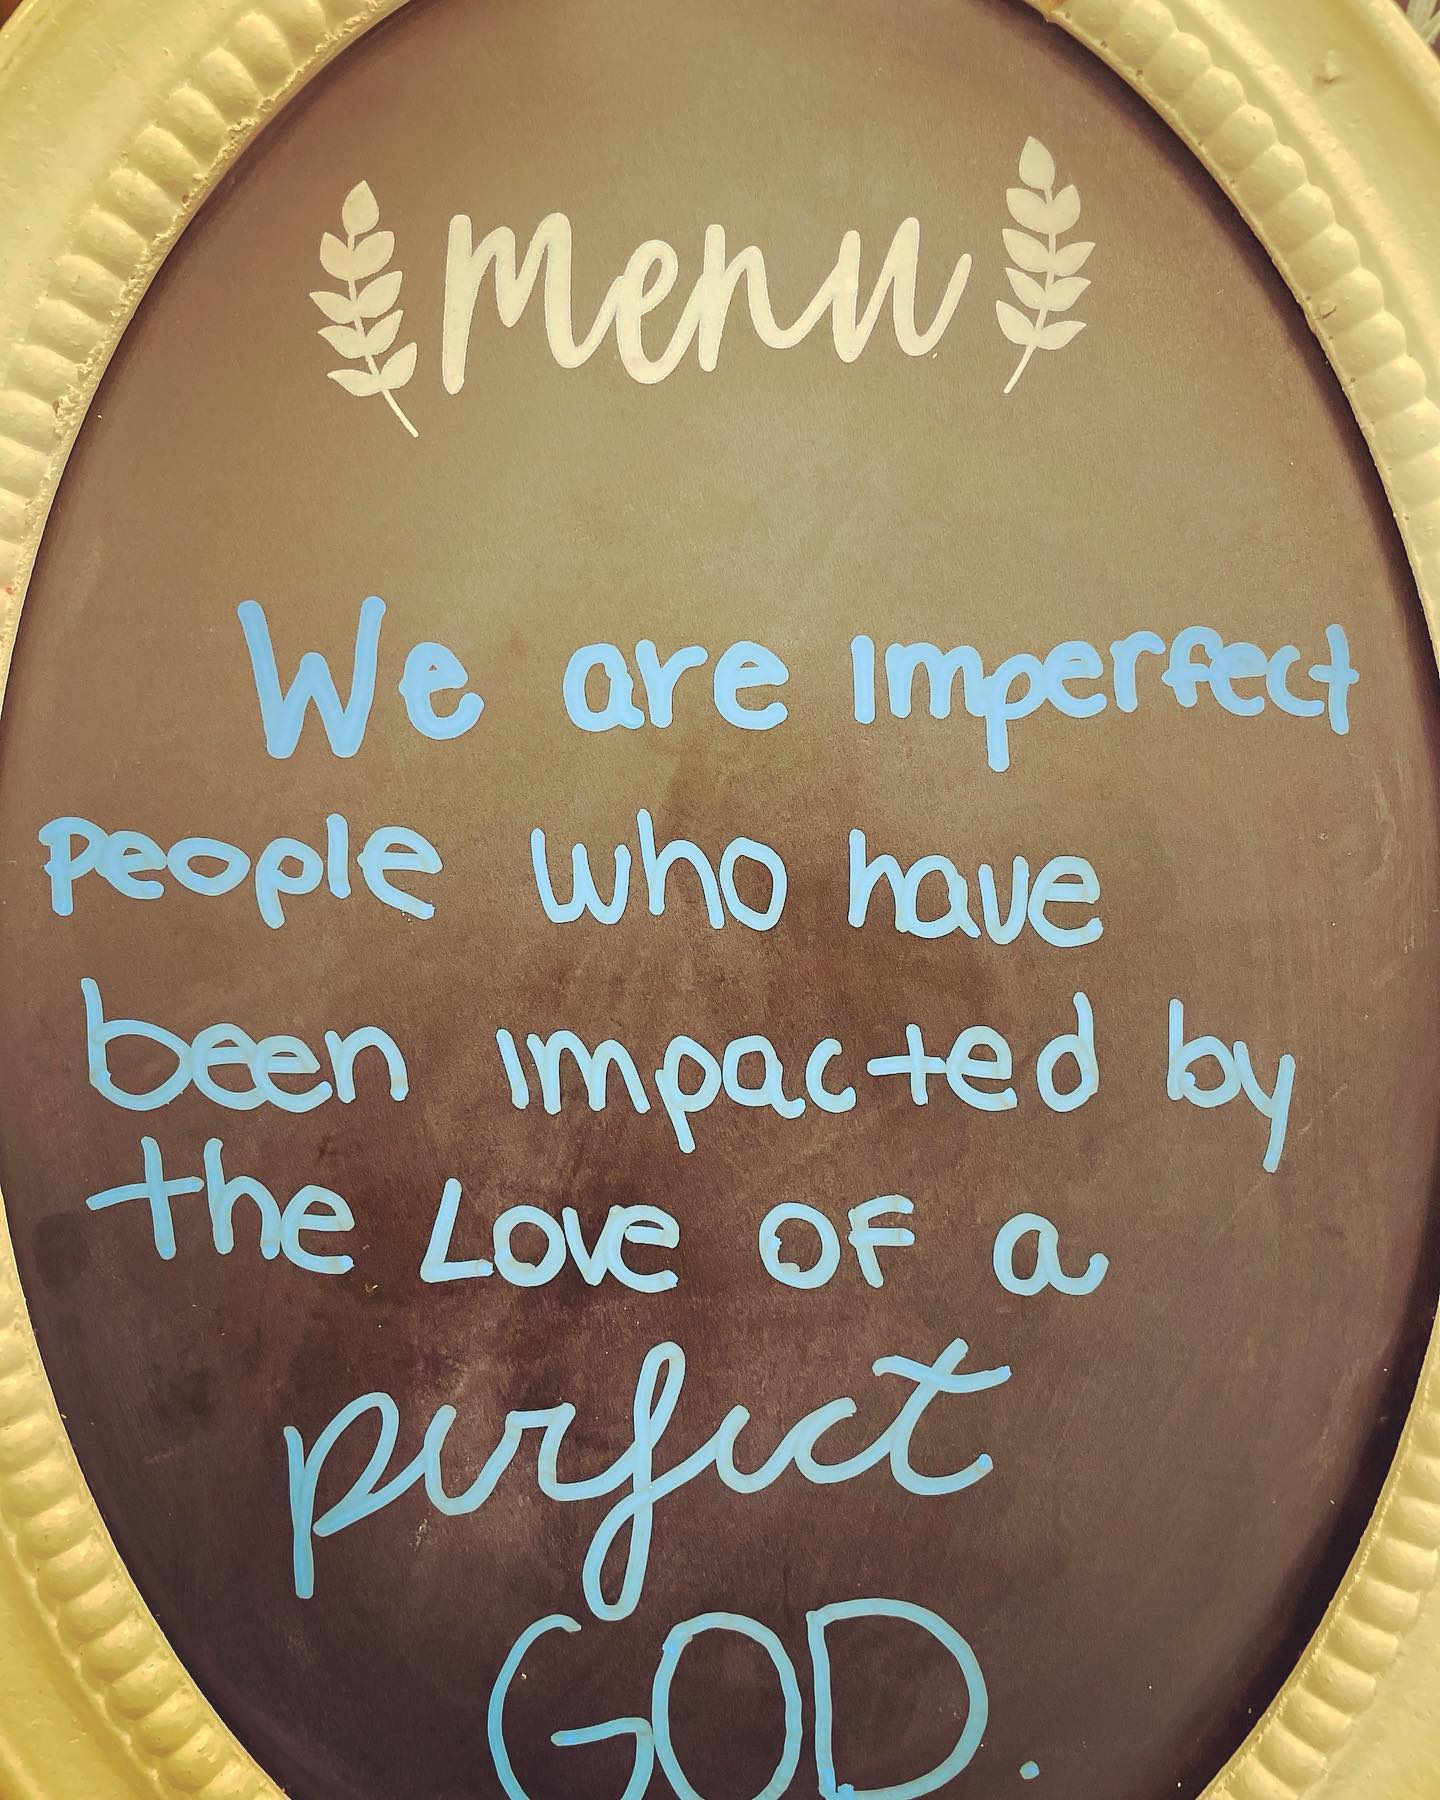 menu
We are Imperfect
people who have
been impacted by
the Love of a
perfect
GOD.